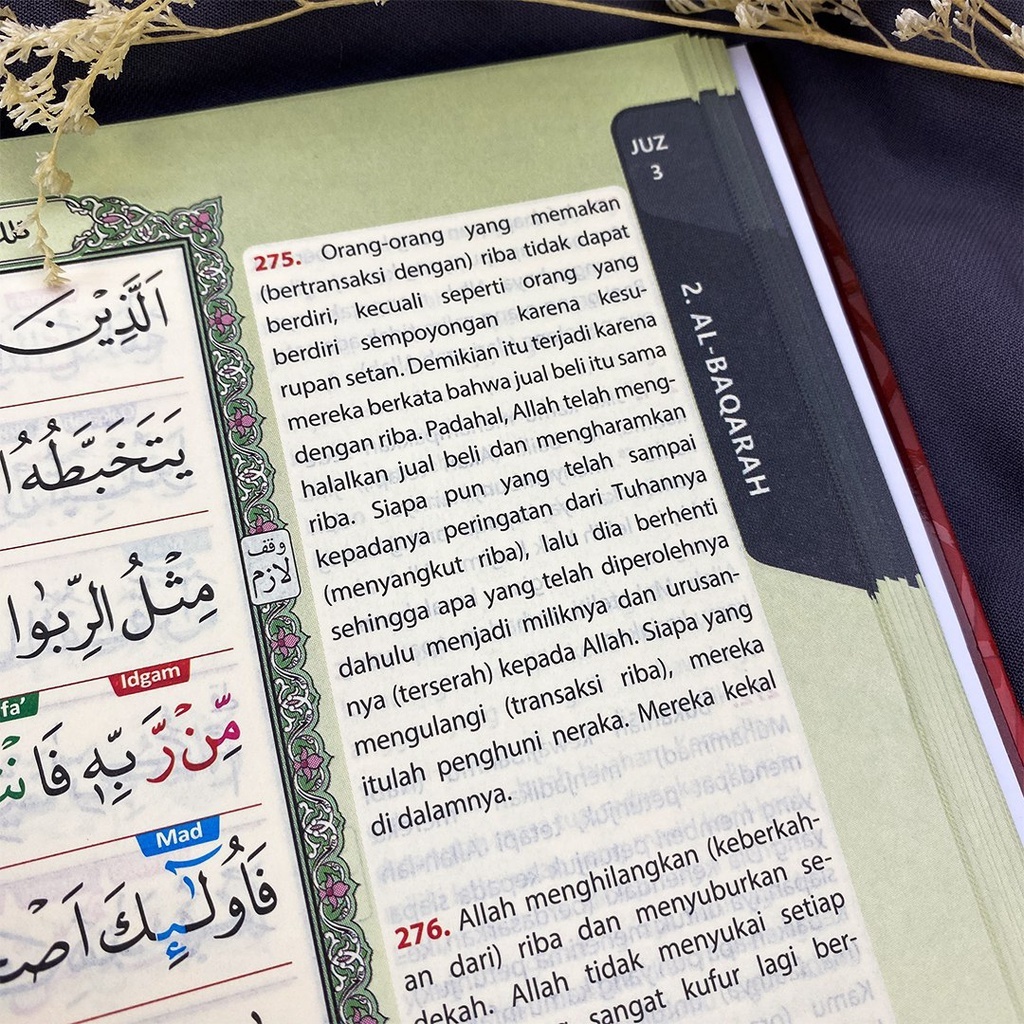 JUZ
3
2. AL-BAQARAH
الَّذِيْنَ
يَتَخَبَّطُهُ
وقف
لازم
مِثْلُ الرِّبٰوا
Idgam
fa'
مِّنْ رَّبِّهٖ
Mad
فَاُولٰۤىِٕكَ
275. Orang-orang yang memakan
(bertransaksi dengan) riba tidak dapat
berdiri, kecuali seperti orang yang
berdiri sempoyongan karena kesu-
rupan setan. Demikian itu terjadi karena
mereka berkata bahwa jual beli itu sama
dengan riba. Padahal, Allah telah meng-
halalkan jual beli dan mengharamkan
riba. Siapa pun yang telah sampai
kepadanya peringatan dari Tuhannya
(menyangkut riba), lalu dia berhenti
sehingga apa yang telah diperolehnya
dahulu menjadi miliknya dan urusan-
nya (terserah) kepada Allah. Siapa yang
mengulangi (transaksi riba), mereka
itulah penghuni neraka. Mereka kekal
di dalamnya.
276. Allah menghilangkan (keberkah-
an dari) riba dan menyuburkan se-
dekah. Allah tidak menyukai setiap
sangat kufur lagi ber-